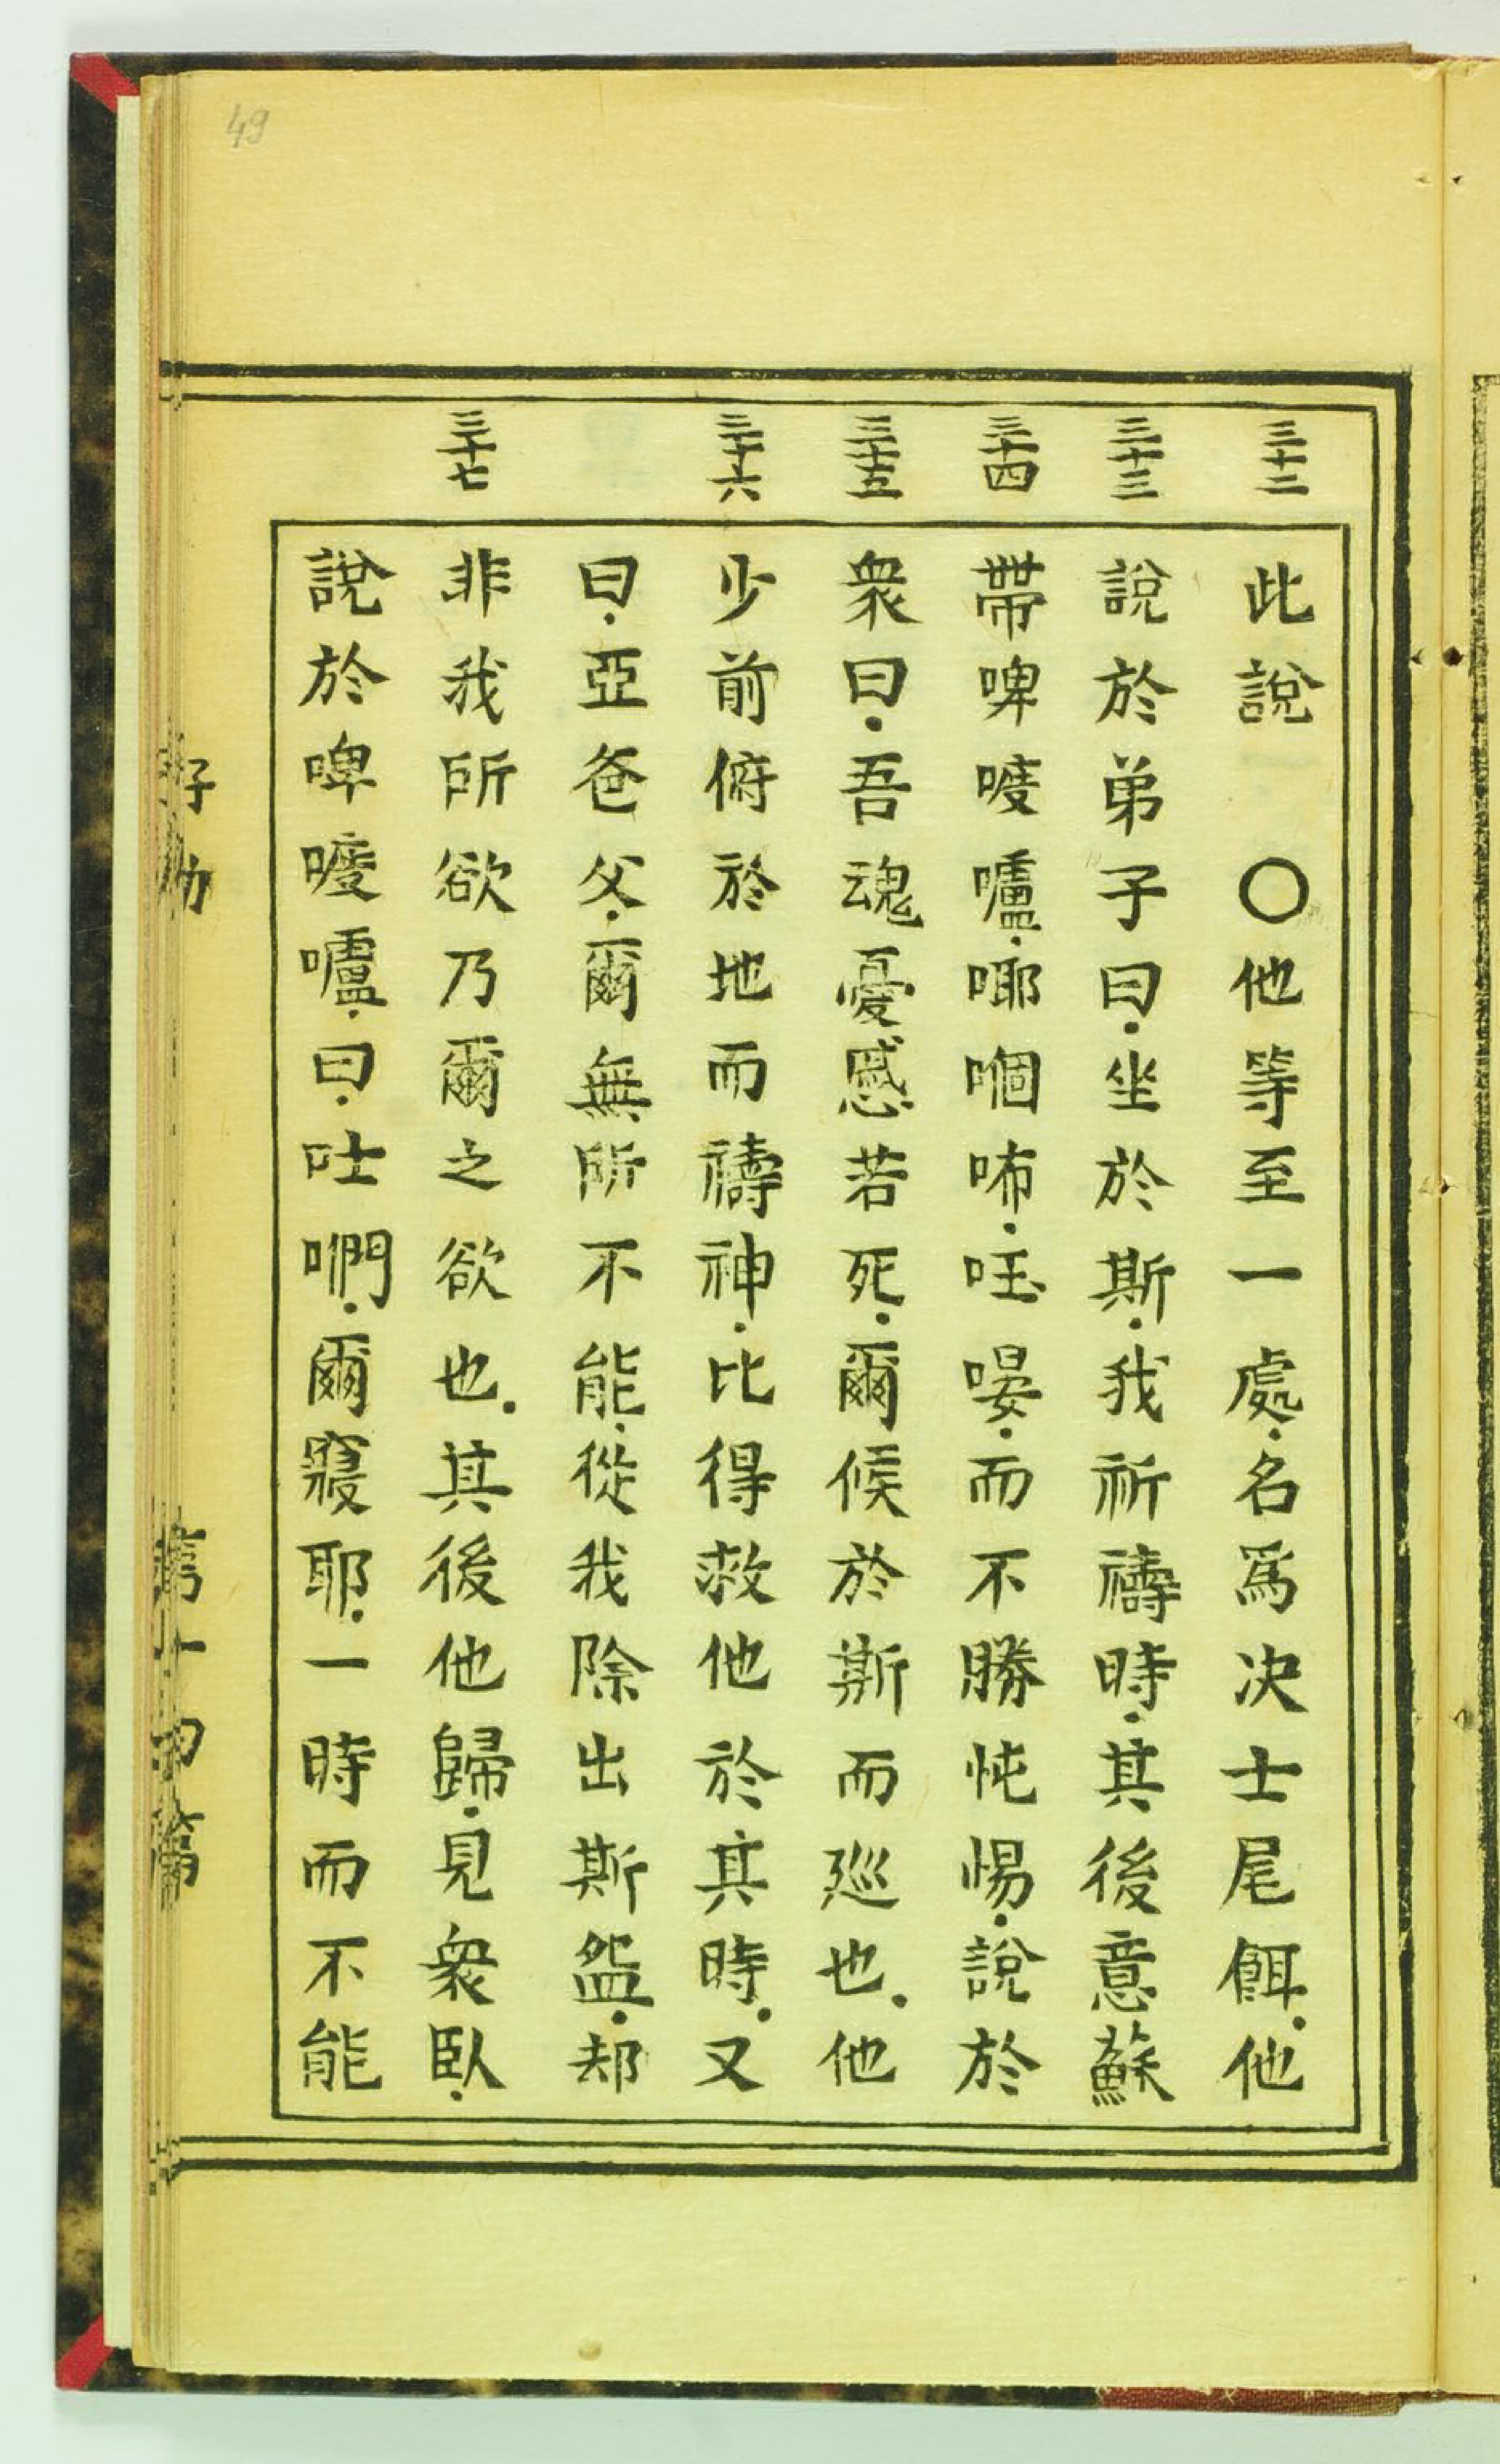 49
三十二
此說　〇他等至一處.名爲决士尾餌.他
三十三
說於弟子曰.坐於斯.我祈禱時.其後意蘇
三十四
帶啤嘜嚧.㖿㗽咘.㕵㫟.而不勝忳惕.說於
三十五
衆曰.吾魂憂慼若死.爾候於斯而廵也.他
三十六
少前俯於地而禱神.比得救他於其時.又
曰.亞爸父.爾無所不能.從我除出斯盌.却
三十七
非我所欲乃爾之欲也.其後他歸.見衆臥.
說於啤嘜嚧.曰.吐們.爾寢耶.一時而不能
第十四篇